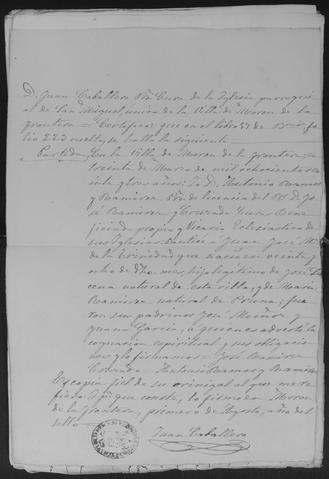 D. Juan Caballero Pro. Cura de la Iglesia parroqui
al de San Miguel, única de la Villa de Moron de la
frontera = Certifico: que en el libro 57 de fo
lio 223 vuelto, se halla la siguiente
Partida En la Villa de Moron de la frontera, a
treinta de Marzo de mil ochocientos se
y tres años: Yo D. Antonio Ramos
y Ramirez Pro. de licencia del Sr. D. Jo
sé Ramirez y Cura Bene
ficiado propio y Vicario Eclesiastico de
sus Iglesias: bautice a Juan José Ma.
de la Trinidad que nacio en veinte y
ocho de dho. mes, hijo legitimo de José
cena natural de esta villa, y de Maria
Ramirez natural de fue
ron sus padrinos José Muñoz y
Juana Garcia, a quienes advertí la
cognacion espiritual y sus obligacio
nes y lo firmamos = José Ramirez
= Antonio Ramos y Ramirez
Es copia fiel de su original al que me re
fiero. Y para que conste, la firmo en Moron
de la frontera, primero de Agosto, año del
sello =
Juan Caballero